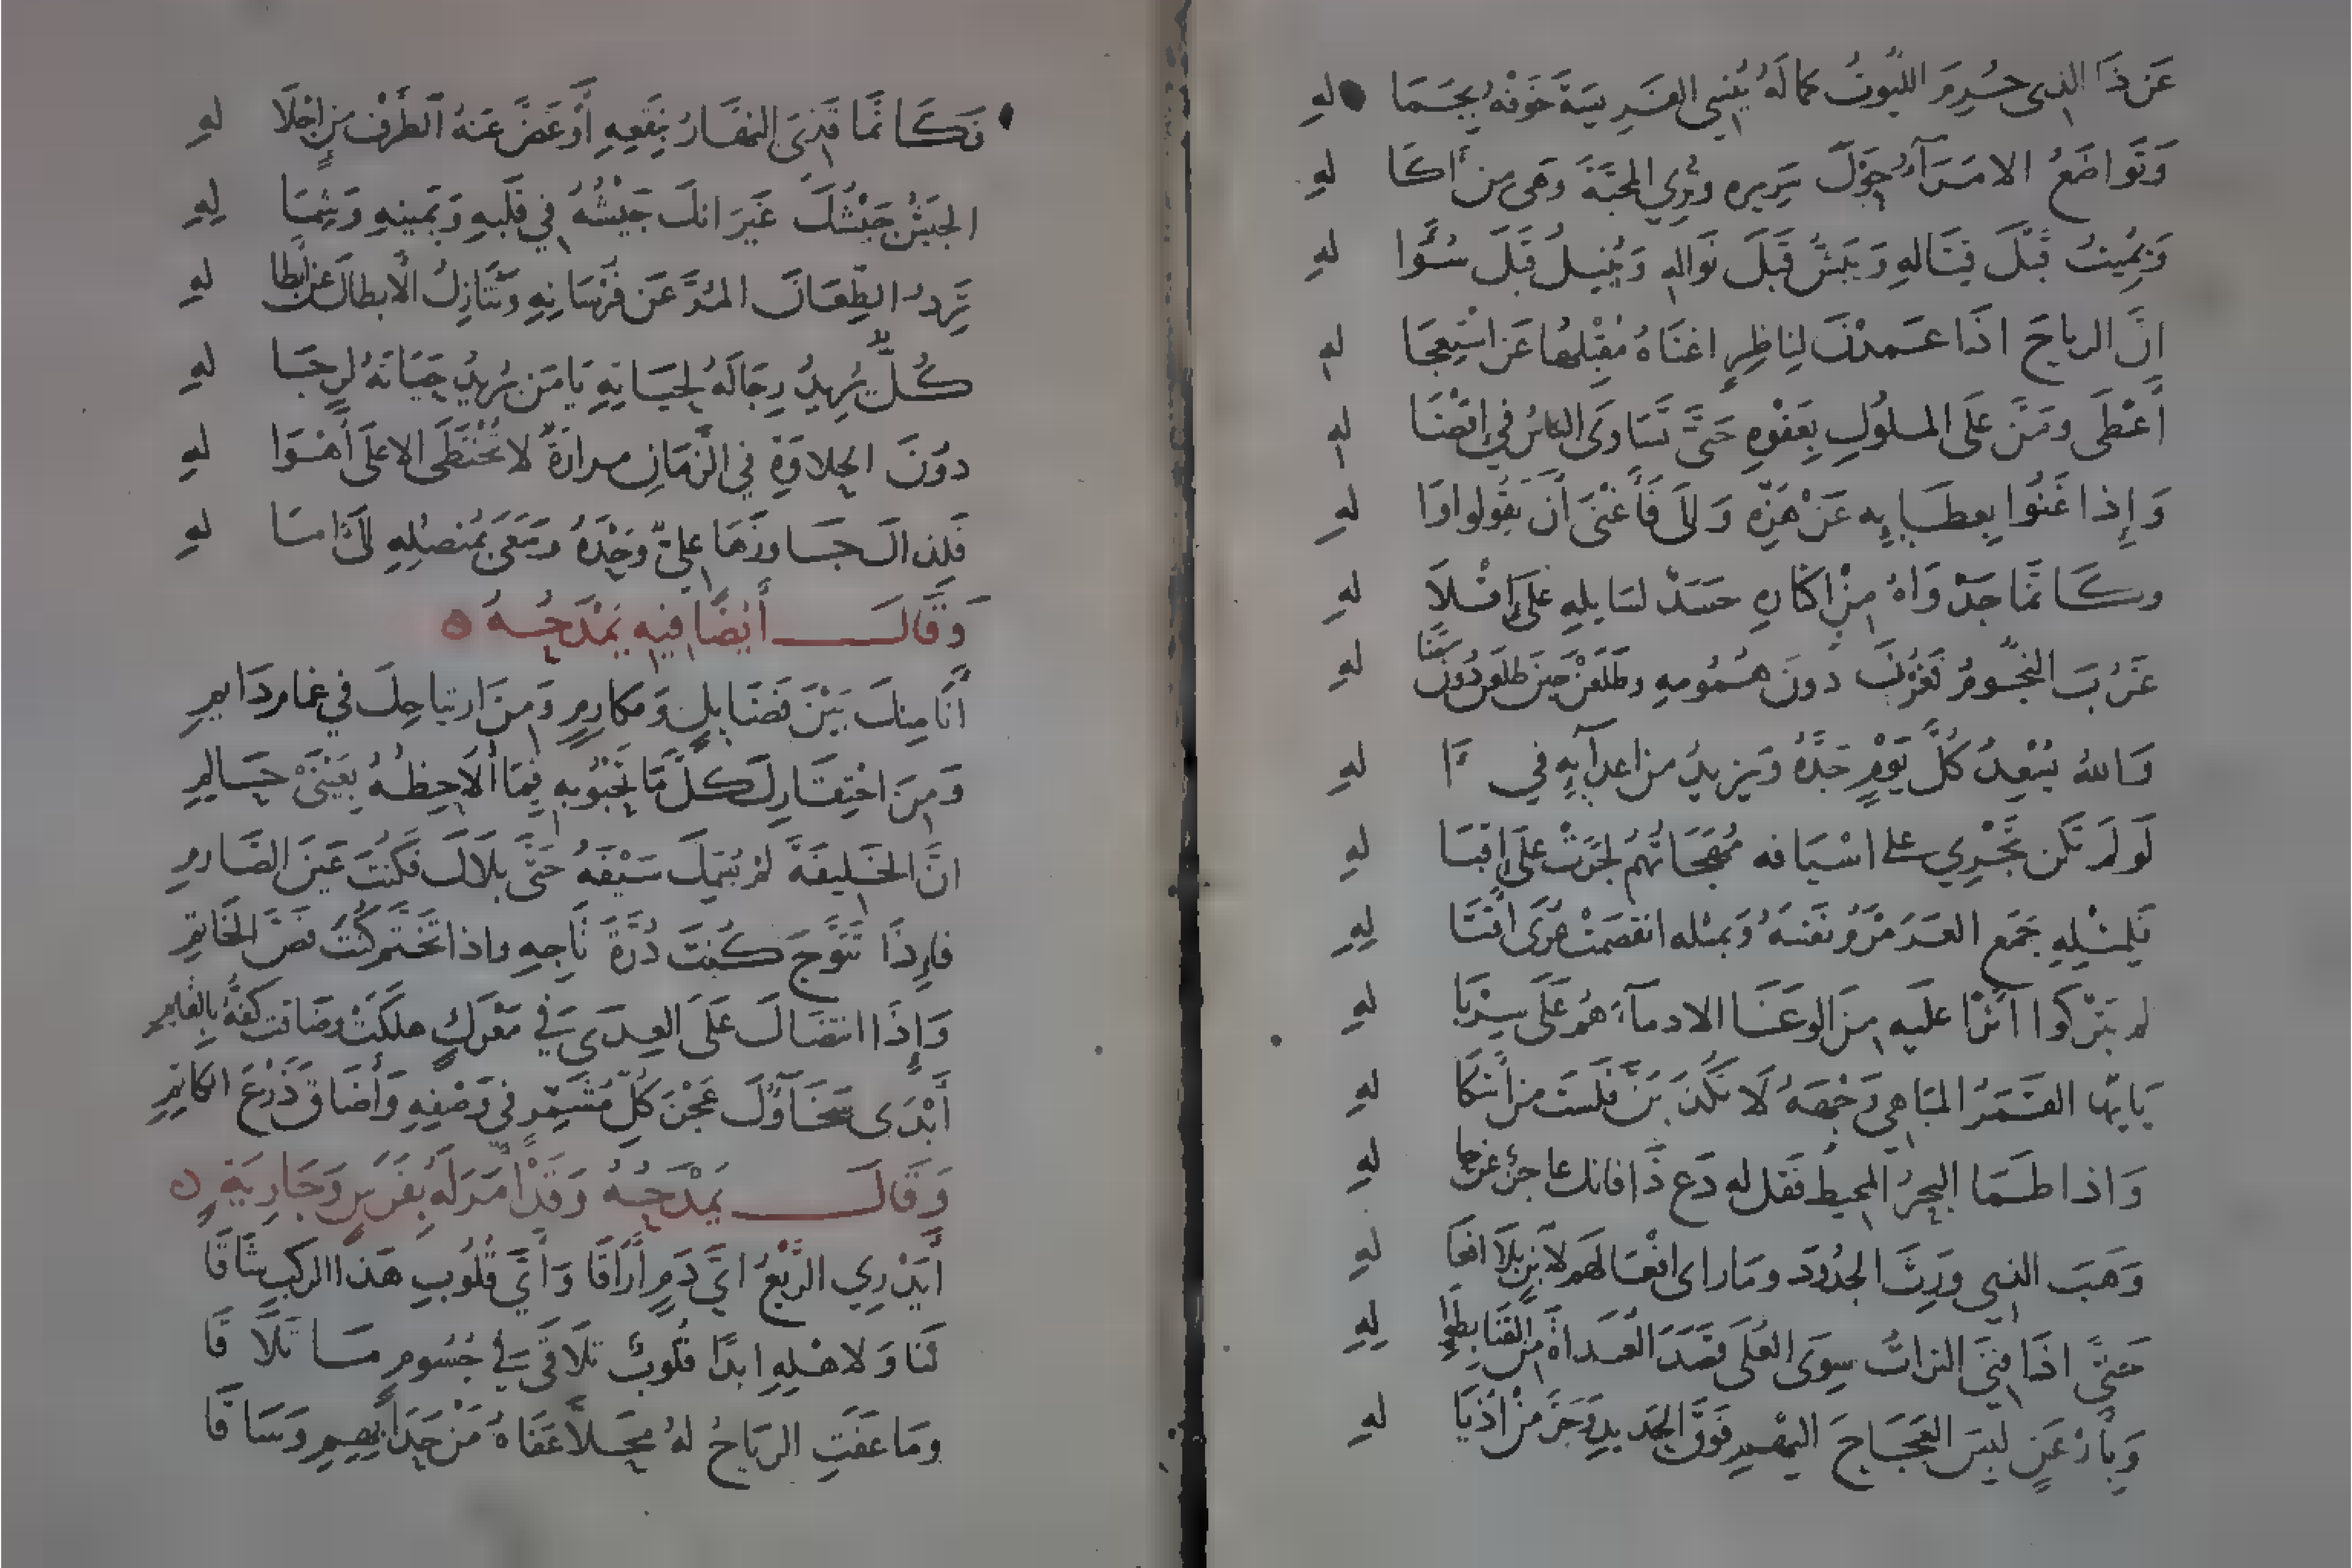 عَن ذَا الذِى حُرِمَ اللُيُوثُ كَمالَهُ يُنْسِي الفَرِيسَةَ خَوْفَهُ بِجَمَا لهِ
وَتَوَاضَعُ الامَرَآءُ حَوْلَ سَرِيرِهِ وَتُرِي المحبَّةَ وَهَى مِن أَاكَا لهِ
وَيُمِيتُ قَبْلَ قِتَالهِ وَيَبَشُّ قَبَلَ نَوَالهِ وَيُنِيلُ قَبلَ سُؤَا لهِ
إِنَّ الرياحَ اذَا عَمدْنَ لِنَاظِرٍ اغنَاهُ مُقْبِلهَا عَن اسْتِعجَا لهِ
أَعْطَى ومَنَّ عَلَى الملُوكِ بِعَفْوِهِ حَتَّى تَسَاوَى الناسُ فِي افْضَا لهِ
وَإِذا غَنُوا بِعطَايِهِ عَنْ هَزِّهِ وَالَى فَأَغْنَى أَنْ يَقُولوا وَا لهِ
وكَانَّما جَدْوَاهُ مِنْ اكْثَارِهِ حَسَدٌ لسَايلِهِ عَلَى اقْلاَ لهِ
غَرَبَ النجُومُ فَغُرْنَ دونَ هُمُومِهِ وطَلَعْنَ حِينَ طلعْنَ دُونَ مَنَا لهِ
وَاللهُ يُسْعِدُ كُلَّ يَوْمٍ جَدَّهُ وَيزيدُ من اعدَآيِهِ في ءَا لهِ
لَو لَم تَكُن تَجْرِي على اسْيَافه مُهَجَاتُهُم لجَرَتْ عَلَى إِقبَا لهِ
فَلِمِثْلِهِ جَمَع العَرَمْرَمُ نَفْسَهُ وَبمثله انفصَمَتْ عُرَى اقْتَا لهِ
لم يَتْركُوا أَثَرًا عليَهِ مِنَ الوغَا الا دمآءَهُم عَلَى سِرْبَا لهِ
يَايهّا القَمَرُ المبَاهِي وَجْهَهُ لَا تُكْذَبَنَّ فَلَستَ من أَشكَا لهِ
وَاذا طَمَا البحرُ المحيطُ فَقل له دَع ذَا فانك عاجزٌ عن حا لهِ
وَهَبَ الذِي وَرِثَ الجُدُودَ ومَا راى افْعَالهَم لابْنٍ بلَا افعَا لهِ
حَتىَّ اذَا فنِيَ التراثُ سِوَى العُلَى قَصَدَ العُدَاةَ مِن القَنا بِطوَا لهِ
وَبأَرْعَنٍ لبِسَ العَجَاجَ اليْهمِ فَوْقَ الحديدِ وَجَرَّ منْ اذْيَا لهِ
فكَانَّما قَذِىَ النهَارُ بِنَقعِهِ أَوْغَضَّ عَنهُ الطَرْفَ مِن إجْلَا لهِ
الجَيَشُ جَيْشُكَ غَيَرَ انكَ جَيْشُهُ في قَلبهِ وَيَمينهِ وَشِمَا لهِ
تَرِدُ الطِّعَانَ المُرَّ عَن فُرْسَانِهِ وتُنَازِلُ الأبطالَ عَن ابْطا لهِ
كُلٌّ يُرِيدُ رِجَالَهُ لحيَاتِهِ يَا مَن يُريدُ حَيَاتَهُ لرِجَا لهِ
دوُنَ الحلاوَةِ فِي الزَّمَانِ مرارَةٌ لا تُخْتَطَى الا عَلَى أَهْوَا لهِ
فَلِذاكَ جَاوزَهَا عليٌّ وَحْدَهُ وسَعَى بمُنصُلِهِ الَىَ امَا لهِ
وَقَالَ أَيضًا فيهِ يَمْدَحُهُ
أَنَا مِنكَ بَيْنَ فَضَايلٍ وَمَكارِمٍ وَمِنَ ارتياحِكَ في غمامٍ دَايمِ
وَمِنَ احْتِقَارِكَ كلَّ مَا تَحْبُوبهِ فِيمَا أُلاَحِظهُ بِعَيْنَىْ حَالِمِ
انَّ الخَليفَةَ لم يُسَمِّكَ سَيْفَهُ حَتَّى بلاَكَ فكُنتَ عَينَ الصَّارمِ
فإِذَا تَتَوَّجَ كُنتَ دُرَّةَ تَاجِهِ واذا تَخَتَّمَ كُنتَ فَصَّ الخاتمِ
وَإِذَا انتضَاكَ عَلَى العِدَى فِي مَعْرَكٍ هَلكَتْ وضَاقت كَفُّهُ بِالقَايمِ
أَبْدَى سَخَآوُكَ عَجْنَ كُلِّ مُشَمِّرٍ فِي وَصْفِهِ وَأَضَاقَ ذَرْعَ الكاتِمِ
وَقَالَ يَمْدَحهُ وَقَدْ أَمَرَ لَهُ بِفَرَسٍ وَجَارِيَةٍ
أَيَدْرِي الرَّبْعُ ايَّ دَمٍ أَرَاقَا وَأَيَّ قُلُوبِ هَذا الرَكبِ شَاقَا
لَنَا وَلاهْلِهِ ابدًا قُلُوبٌ تَلَاقَى في جُسُومٍ مَا تَلَا قَا
ومَا عَفَتِ الرّيَاحُ لهُ مَحَلاًّ عَفَاهُ مَنْ حَدَا بِهِمِ وَسَا قَا